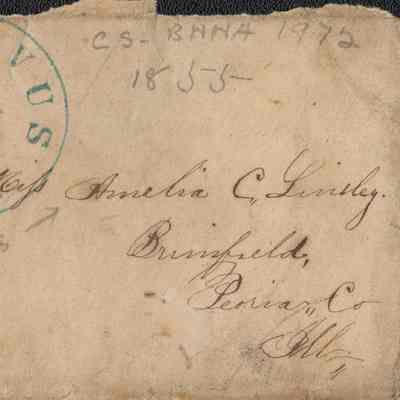 CS - BNNA 1972
1855
VUS
Miss Amelia C. Linsley.
Brimfield,
Peoria, Co
Ills,